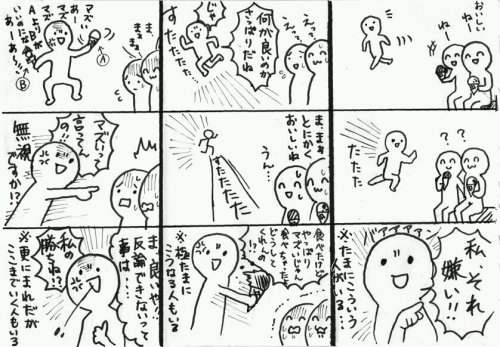 おいしい
ねー
ねー
? ?
すたたた
バアアアアン
私、それ
嫌い!!
※たまにこういう
人がいる…
えっ?
えっ?
何が良いのか
さっぱりだね
じゃ
すたたたた
まままぁ
とにかく
おいしいね
うん…
すたたたた
食べたけど
やっぱり
マズいじゃん
食べちゃった
どうして
くれんの
!?
※極たまに
こうなる人もいる
まぁまぁ
マズ
マズ
あー
マズ
AよりBが
いいのにな
あーあー
A
B
マズいって
言ってん
の!!
無視
ですか!?
ま、良いや!
反論できないって
事は
私の
勝ちね!?
※更にまれだが
ここまでいく人もいる